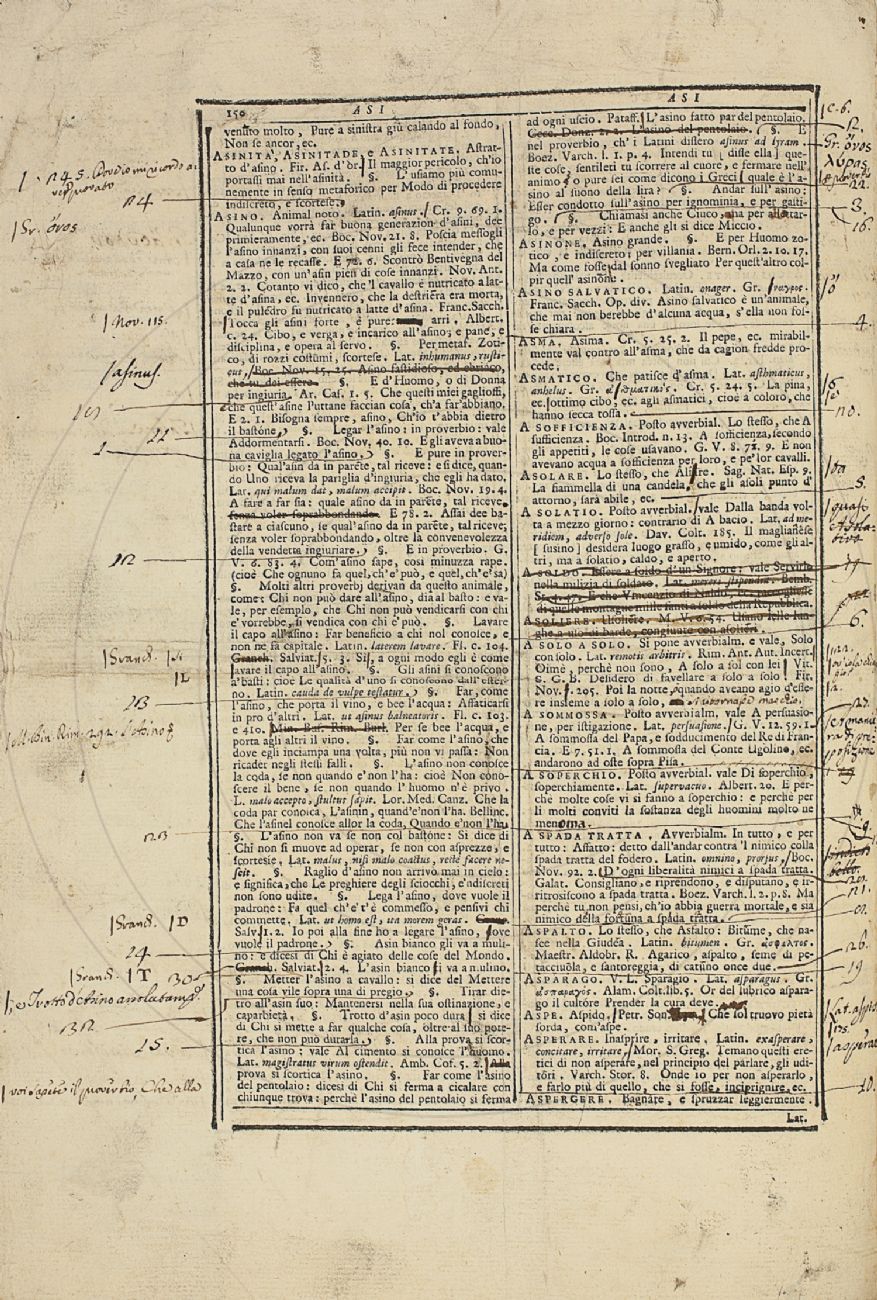 150
ASI
ASI
venuto molto, Pure a sinistra giù calando al fondo,
Non se ancor, ec.
ASINITÀ, ASINITADE, e ASINITATE. Astrat-
to d'asino. Fir. As. d'or. Il maggior pericolo, ch'io
portassi mai nell'asinità. §. L'usiamo più comu-
nemente in senso metaforico per Modo di procedere
indiscreto, e scortese.
ASINO. Animal noto. Latin. asinus. Cr. 9. 69. 1.
Qualunque vorrà far buona generazion d'asini, dee
primieramente, ec. Boc. Nov. 21. 8. Poscia messogli
l'asino innanzi, con suoi cenni gli fece intender, che
a casa ne le recasse. E 72. 6. Scontrò Bentivegna del
Mazzo, con un'asin pien di cose innanzi. Nov. Ant.
2. 2. Cotanto vi dico, che 'l cavallo è nutricato a lat-
te d'asina, ec. Invennero, che la destriera era morta,
e il puledro fu nutricato a latte d'asina. Franc. Sacch.
Tocca gli asini forte, e pure arri. Albert.
c. 24. Cibo, e verga, e incarico all'asino; e pane, e
disciplina, e opera al servo. §. Per metaf. Zoti-
co, di rozzi costumi, scortese. Lat. inhumanus, rusti-
cus, Boc. Nov. 15. 25. Asino fastidioso, ed ebriaco,
che tu dei essere. §. E d'Huomo, o di Donna
per ingiuria. Ar. Cas. 1. 5. Che questi miei gaglioffi,
che quest'asine Puttane faccian cosa, ch'a far'abbiano.
E 2. 1. Bisogna sempre, asino, Ch'io t'abbia dietro
il bastone. §. Legar l'asino: in proverbio: vale
Addormentarsi. Boc. Nov. 40. 10. Egli aveva a buo-
na caviglia legato l'asino. §. E pure in prover-
bio: Qual'asin da in parete, tal riceve: e si dice, quan-
do Uno riceva la pariglia d'ingiuria, che egli ha dato.
Lat. qui malum dat, malum accipit. Boc. Nov. 19. 4.
A fare a far sia: quale asino da in parete, tal riceve,
senza voler soprabbondando. E 78. 2. Assai dee ba-
stare a ciascuno, se qual'asino da in parete, tal riceve,
senza voler soprabbondando, oltre la convenevolezza
della vendetta ingiuriare. §. E in proverbio. G.
V. 6. 83. 4. Com'asino sape, così minuzza rape.
(cioè Che ognuno fa quel, ch'e' può, e quel, ch'e' sa)
§. Molti altri proverbj derivan da questo animale,
come: Chi non può dare all'asino, dia al basto: e va-
le, per esempio, che Chi non può vendicarsi con chi
e' vorrebbe, si vendica con chi e' può. §. Lavare
il capo all'asino: Far beneficio a chi nol conosce, e
non ne fa capitale. Latin. laterem lavare. Fl. c. 104.
Granch. Salviat. 5. 3. Sì, a ogni modo egli è come
lavare il capo all'asino. §. Gli asini si conoscono
a' basti: cioè Le qualità d'uno si conoscono dall'ester-
no. Latin. cauda de vulpe testatur. §. Far, come
l'asino, che porta il vino, e bee l'acqua: Affaticarsi
in pro d'altri. Lat. ut asinus balneatoris. Fl. c. 103.
e 410. Min. Bas. Rim. Burl. Per se bee l'acqua, e
porta agli altri il vino. §. Far come l'asino, che
dove egli inciampa una volta, più non vi passa: Non
ricader negli stessi falli. §. L'asino non conosce
la coda, se non quando e' non l'ha: cioè Non cono-
scere il bene, se non quando l'huomo n'è privo.
L. malo accepto, stultus sapit. Lor. Med. Canz. Che la
coda par conoica, L'asinin, quand'e' non l'ha. Bellinc.
Che l'asinel conosce allor la coda, Quando e' non l'hai
§. L'asino non va se non col bastone: Si dice di
Chi non si muove ad operar, se non con asprezze, e
scortesie. Lat. malus, nisi malo coactus, recte facere ne-
scit. §. Raglio d'asino non arrivò mai in cielo:
e significa, che Le preghiere degli sciocchi, e'ndiscreti
non sono udite. §. Lega l'asino, dove vuole il
padrone: Fa quel ch'e' t'è commesso, e pensivi chi
commette. Lat. ut homo est, ita morem geras.
Salv. 1. 2. Io poi alla fine ho a legare l'asino, dove
vuole il padrone. §. Asin bianco gli va a muli-
no: e dicesi di Chi è agiato delle cose del Mondo.
Granch. Salviat. 2. 4. L'asin bianco gli va a mulino.
§. Metter l'asino a cavallo: si dice del Mettere
una cosa vile sopra una di pregio. §. Tirar die-
tro all'asin suo: Mantenersi nella sua ostinazione, e
caparbietà. §. Trotto d'asin poco dura: si dice
di Chi si mette a far qualche cosa, oltre al suo pote-
re, che non può durarla. §. Alla prova si scor-
tica l'asino: vale Al cimento si conosce l'huomo.
Lat. magistratus virum ostendit. Amb. Cof. 5. 2. Alla
prova si scortica l'asino. §. Far come l'asino
del pentolaio: dicesi di Chi si ferma a cicalare con
chiunque trova: perchè l'asino del pentolaio si ferma
ad ogni uscio. Pataff. L'asino fatto par del pentolaio.
Cecc. Donz. 2. 2. L'asino del pentolaio. §. E
nel proverbio, ch' i Latini dissero asinus ad lyram.
Boez. Varch. l. 1. p. 4. Intendi tu [disse ella] que-
ste cose, sentileti tu scorrere al cuore, e fermare nell'
animo? o pure sei come dicono i Greci [quale è l'a-
sino al suono della lira? §. Andar sull'asino:
Esser condotto sull'asino per ignominia, e per gasti-
go. §. Chiamasi anche Ciuco, ma per
so, e per vezzi: E anche gli si dice Miccio.
ASINONE. Asino grande. §. E per Huomo zo-
tico, e indiscreto: per villania. Bern. Orl. 2. 10. 17.
Ma come fosse dal sonno svegliato Per quest'altro col-
pir quell' asinone.
ASINO SALVATICO. Latin. onager. Gr.
Franc. Sacch. Op. div. Asino salvatico è un'animale,
che mai non berebbe d'alcuna acqua, s'ella non fos-
se chiara.
ASMA. Asima. Cr. 5. 25. 2. Il pepe, ec. mirabil-
mente val contro all'asma, che da cagion fredde pro-
cede.
ASMATICO. Che patisce d'asma. Lat. asthmaticus,
anhelus. Gr. Cr. 5. 24. 5. La pina,
ec. ottimo cibo, ec. agli asmatici, cioè a coloro, che
hanno secca tossa.
A SOFFICENZA. Posto avverbial. Lo stesso, che A
sufficienza. Boc. Introd. n. 13. A sofficienza, secondo
gli appetiti, le cose usavano. G. V. 8. 72. 9. E non
avevano acqua a sofficienza per loro, e pe' lor cavalli.
ASOLARE. Lo stesso, che Alitare. Sag. Nat. Esp. 9.
La fiammella di una candela, che gli asoli punto d'
attorno, sarà abile, ec.
A SOLATIO. Posto avverbial. vale Dalla banda vol-
ta a mezzo giorno: contrario di A bacìo. Lat. ad me-
ridiem, adverso sole. Dav. Colt. 185. Il maglianese
[susino] desidera luogo grasso, e umido, come gli al-
tri, ma a solatio, caldo, e aperto.
A SOLDO. Essere a soldo d'un Signore: vale Servirlo
nella milizia di soldato. Lat. merere stipendia. Bemb.
St. 4. 47. E che Vincenzio di Naldo,
di quelle montagne mille fanti a soldo della Repubblica.
ASOLIERE. Usoliere. M. V. 6. 54.
A SOLO A SOLO. Si pone avverbialm. e vale, Solo
con solo. Lat. remotis arbitris. Rim. Ant. Aut. Incert.
Oimè, perchè non sono, A solo a sol con lei Vit.
S. G. B. Desidero di favellare a solo a solo. Fir.
Nov. 205. Poi la notte, quando aveano agio d'esse-
re insieme a solo a solo,
A SOMMOSSA. Posto avverbialm, vale A persuasio-
ne, per istigazione. Lat. persuasione, G. V. 12. 59. 1.
A sommossa del Papa, e sodducimento del Re di Fran-
cia. E 7. 51. 1. A sommossa del Conte Ugolino, ec.
andarono ad oste sopra Pisa.
A SOPERCHIO. Posto avverbial. vale Di soperchio,
soperchiamente. Lat. supervacuo. Albert. 20. E per-
chè molte cose vi si fanno a soperchio: e perchè per
li molti conviti la sostanza degli huomini molto ne
menoma.
A SPADA TRATTA. Avverbialm. In tutto, e per
tutto: Affatto: detto dall'andar contra 'l nimico colla
spada tratta del fodero. Latin. omnino, prorsus, Boc.
Nov. 92. 2. D'ogni liberalità nimici a spada tratta.
Galat. Consigliano, e riprendono, e disputano, e ir-
ritrosiscono a spada tratta. Boez. Varch. l. 2. p. 8. Ma
perchè tu non pensi, ch'io abbia guerra mortale, e sia
nimico della fortuna a spada tratta.
ASPALTO. Lo stesso, che Asfalto: Bitume, che na-
sce nella Giudéa. Latin. bitumen. Gr. ἄσφαλτος.
Maestr. Aldobr. R. Agarico, aspalto, seme di pe-
tacciuola, e santoreggia, di catuno once due.
ASPARAGO. V. L. Sparagio. Lat. asparagus. Gr.
ἀσπάραγος. Alam. Colt. lib. 5. Or del lubrico aspara-
go il cultóre Prender la cura deve.
ASPE. Aspido. Petr. Son. Che sol truovo pietà
sorda, com'aspe.
ASPERARE. Inasprire, irritare. Latin. exasperare,
concitare, irritare. Mor. S. Greg. Temano questi ere-
tici di non asperare, nel principio del parlare, gli udi-
tori. Varch. Stor. 8. Onde io per non asperarlo,
e farlo più di quello, che si fosse, inciprignire, ec.
ASPERGERE. Bagnare, e spruzzar leggiermente.
Lat.
24
Gr. ὄνος
Nov. 115.
asinus.
22
12
Granch.
L
13
Granch. D
14
Granch. T 30
15.
c. 6.
12.
Gr. ὄνος
λύρας
22.
3.
16.
4.
5.
quasi
6.
9.
21.
26.
19
10.